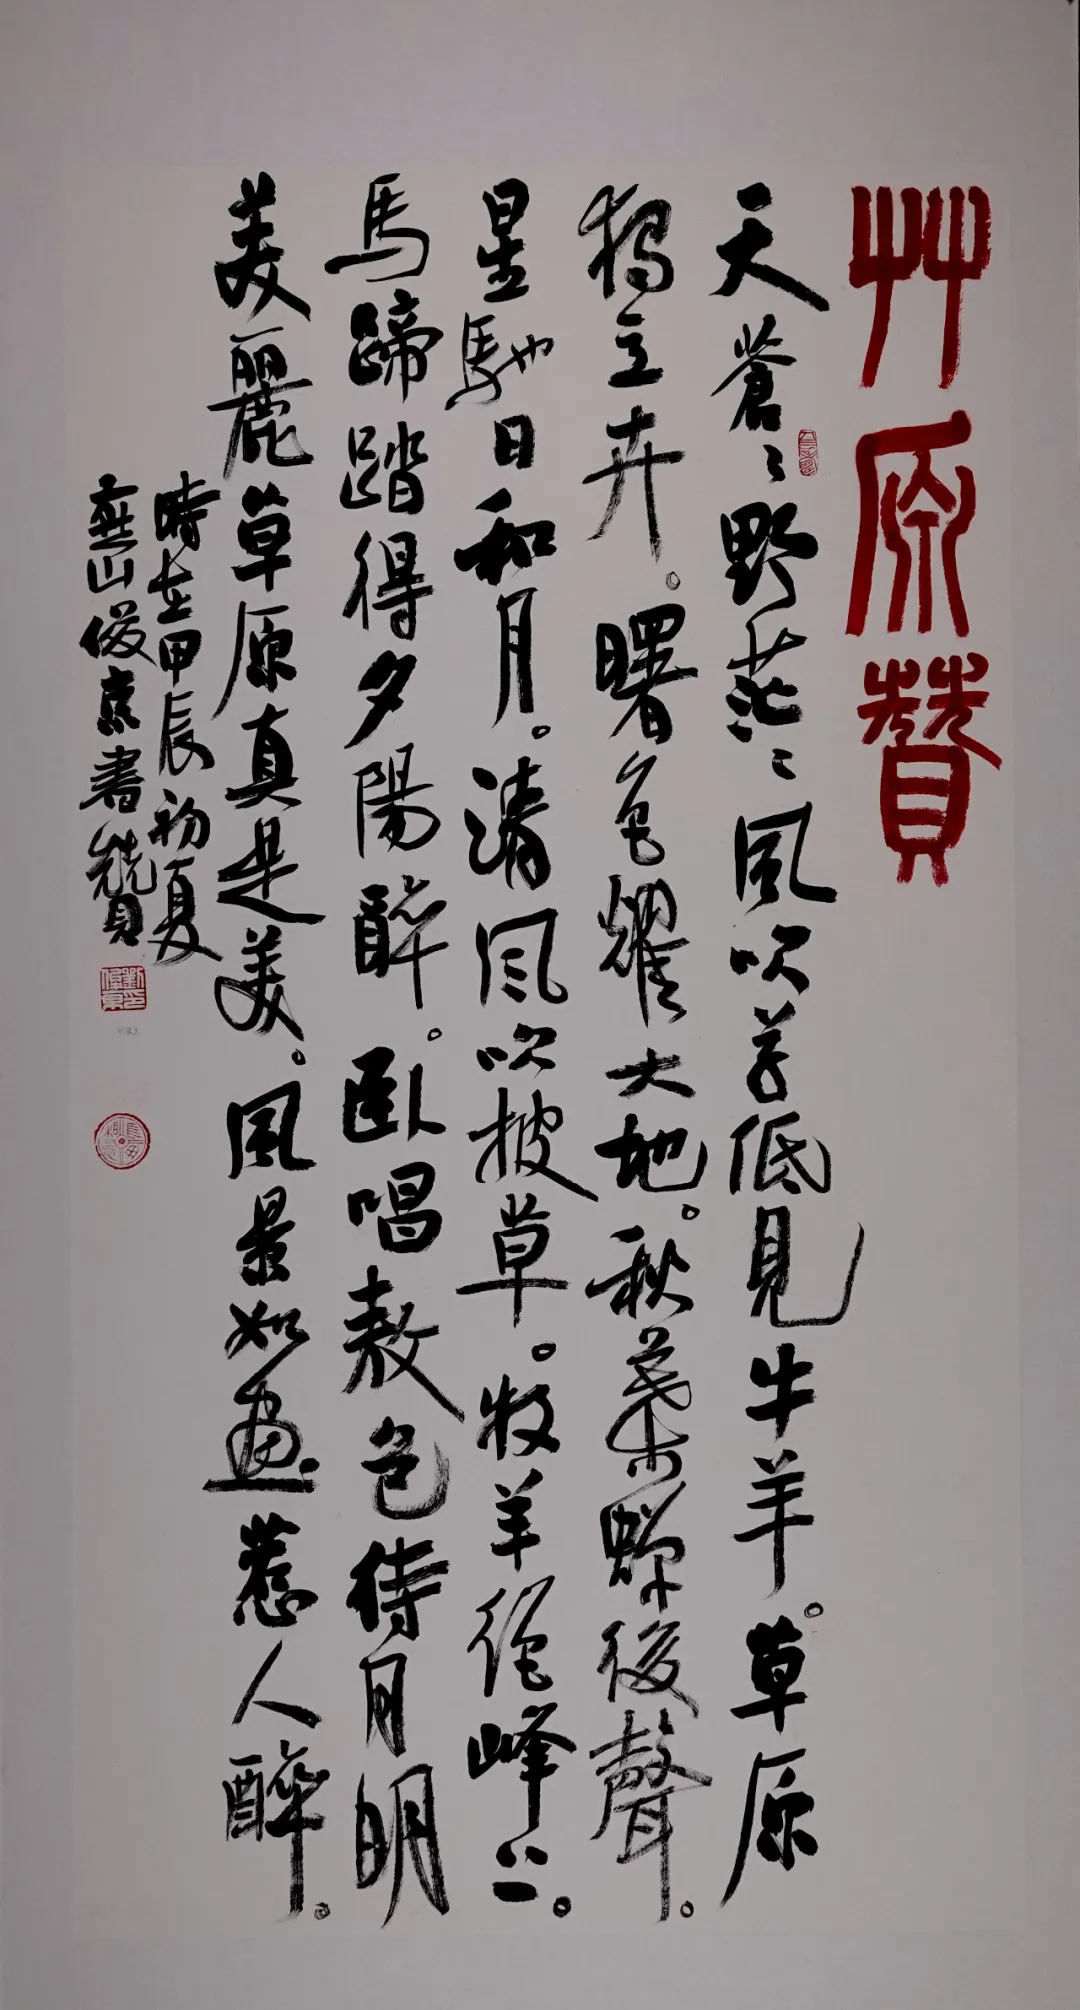 艸原贊
天蒼々野茫々風吹草低見牛羊。草原
獨立卉。曙色耀大地。秋葉蟬後聲。
星馳日和月。清風吹披草。牧羊絕峰上。
馬蹄踏得夕陽醉。臥唱敖包待月明
美麗草原真是美。風景如畫惹人醉。
時在甲辰初夏
山俊京書贊